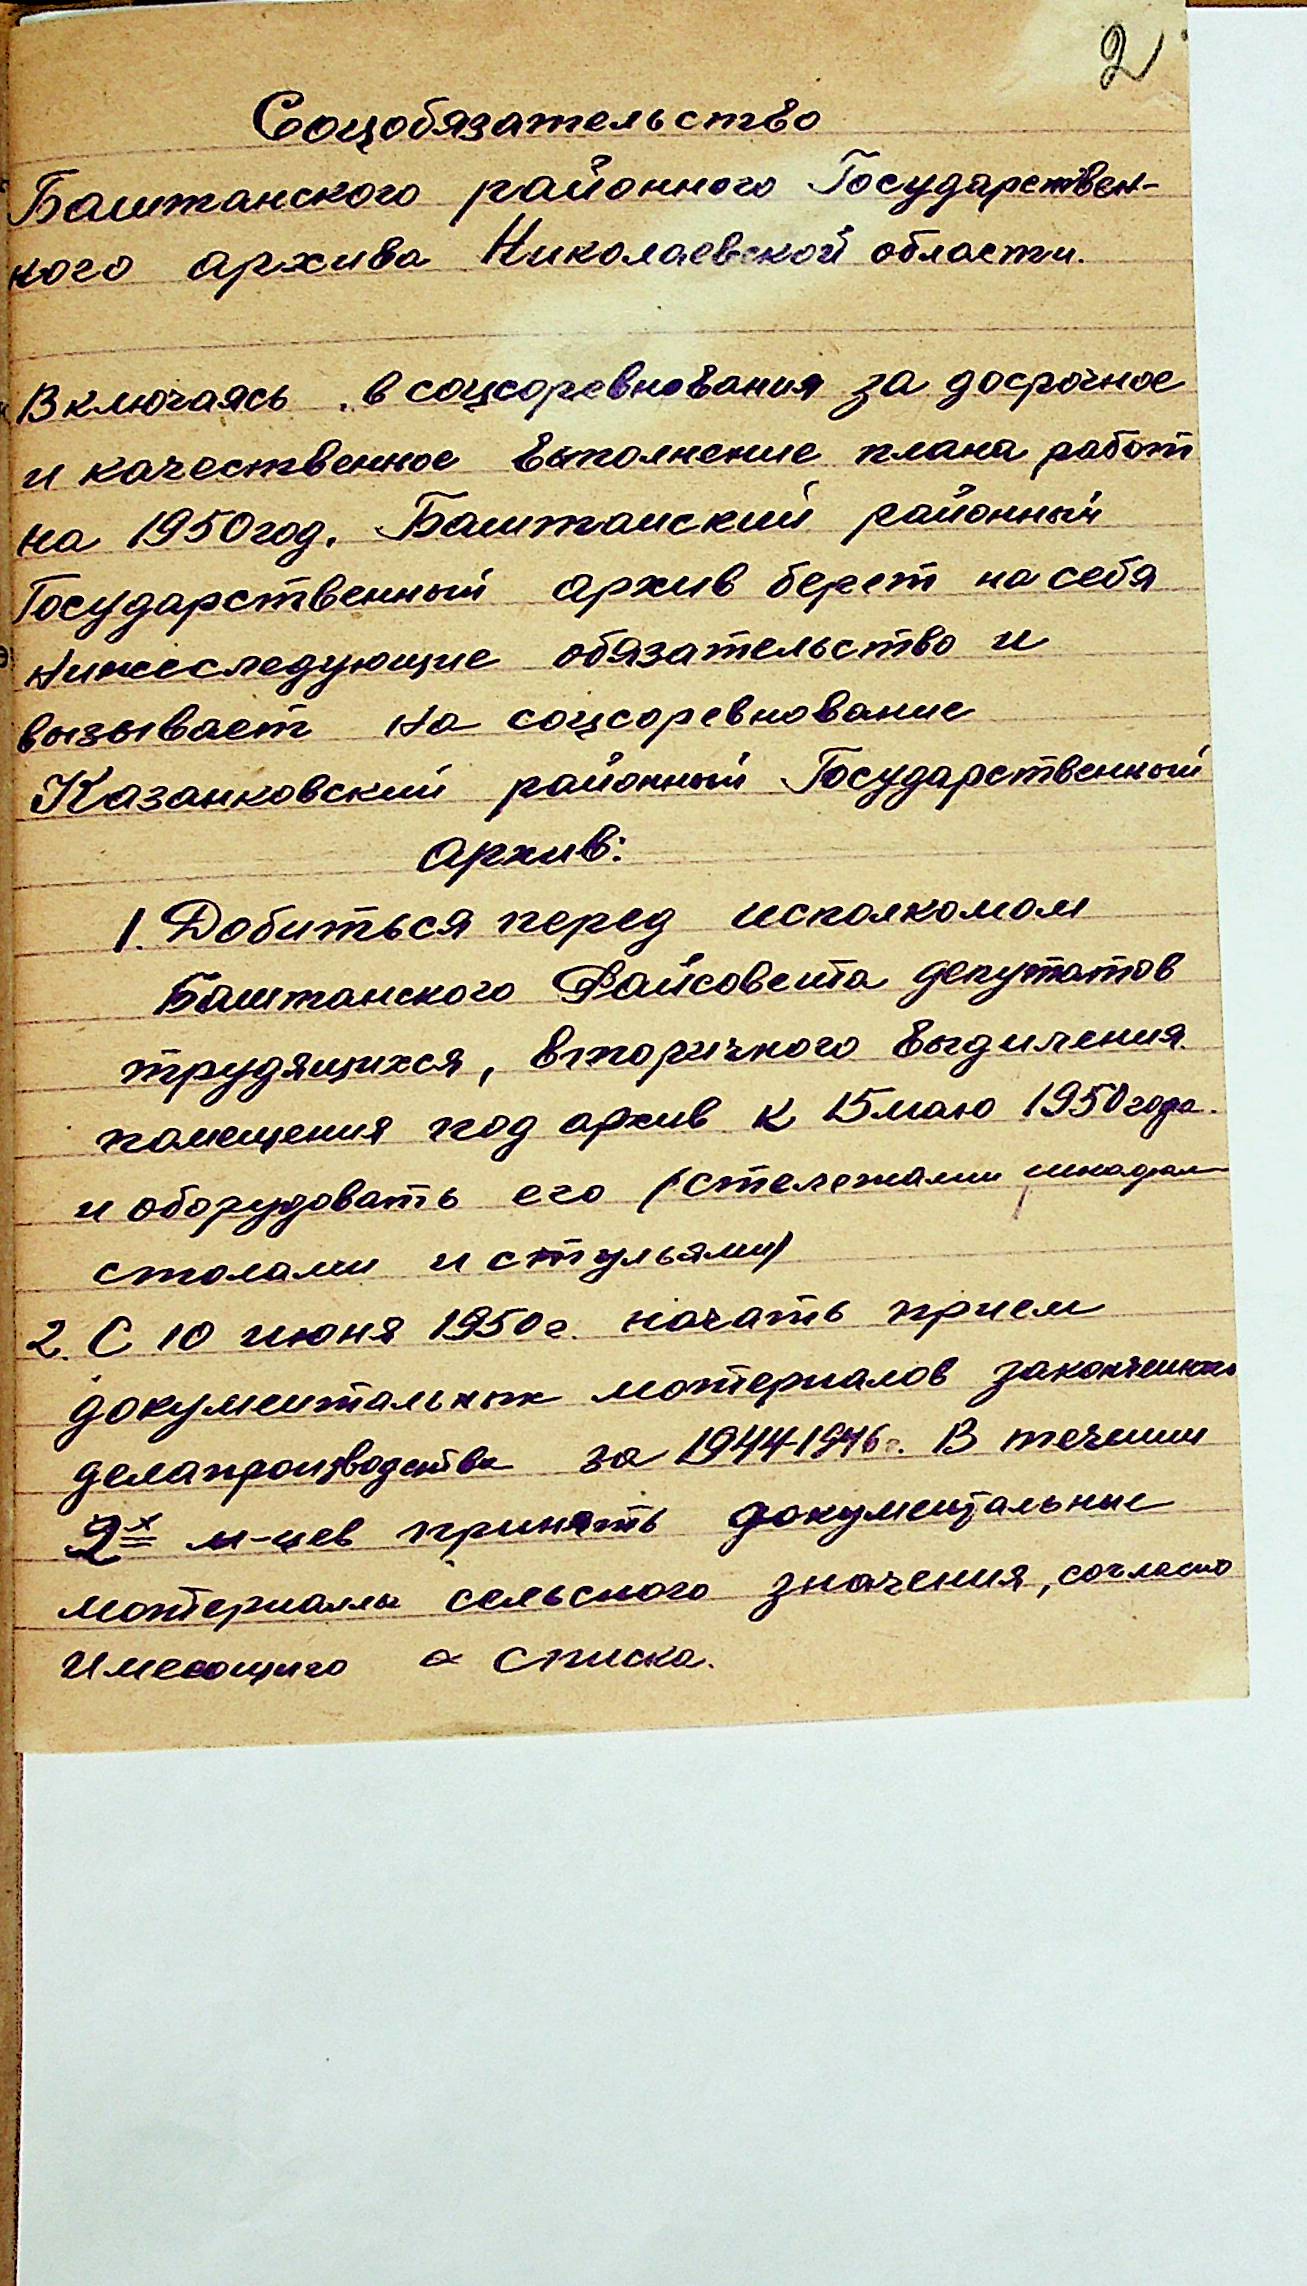 2
Соцобязательство
Баштанского районного Государствен-
ного архива Николаевской области.
Включаясь в соцсоревнования за досрочное
и качественное выполнение плана работ
на 1950 год. Баштанский районный
Государственный архив берет на себя
нижеследующие обязательство и
вызывает на соцсоревнование
Казанковский районный Государственный
архив:
1. Добиться перед исполкомом
Баштанского Райсовета депутатов
трудящихся, вторичного выдиления
помещения под архив к 15 маю 1950 года.
и оборудовать его (стележами
столами и стульями)
2. С 10 июня 1950 г. начать прием
документальных материалов
делапроизводства за 1944-1946 г. В течении
2х м-цев принять документальные
материалы сельского значения, согласно
имеющиго списка.